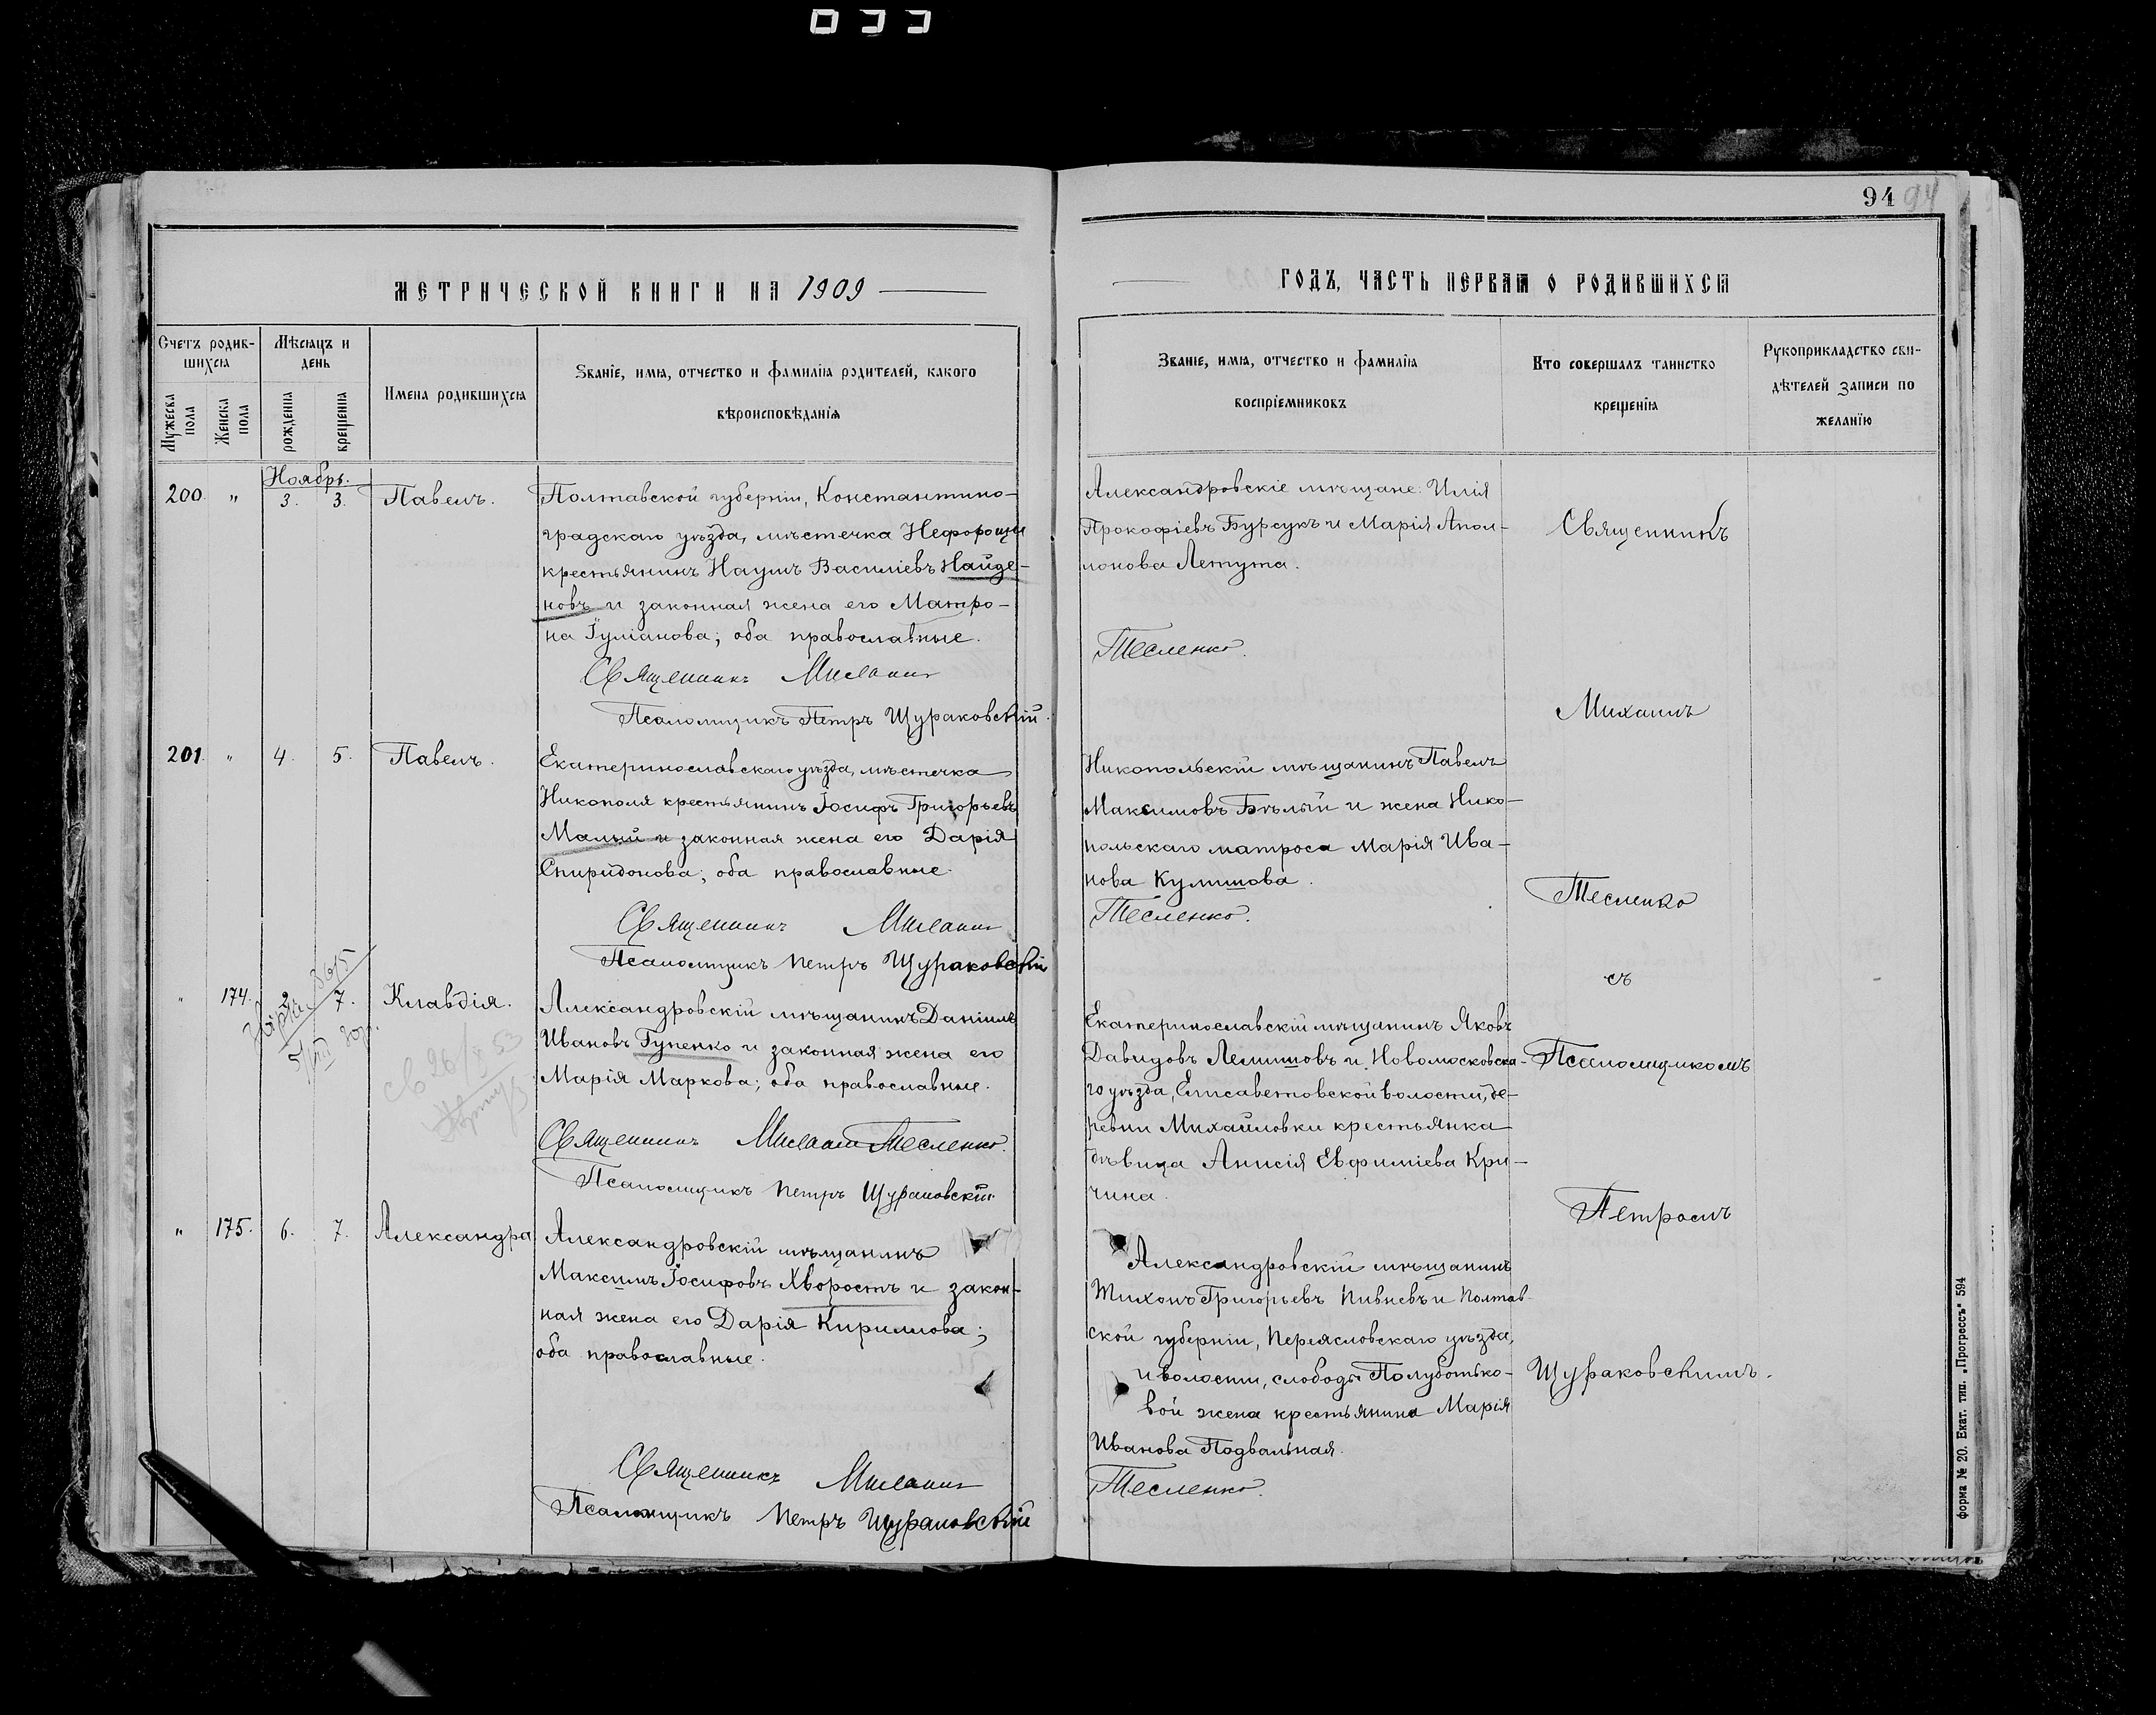 033
94 94
МЕТРИЧЕСКОЙ КНИГИ НА 1909
ГОДЪ, ЧАСТЬ ПЕРВАЯ О РОДИВШИХСЯ
Счетъ родив-
шихся
Мужеска пола
Женска пола
Мѣсяцъ и
день
рожденія
крещенія
Имена родившихся
Званіе, имя, отчество и фамилія родителей, какого
вѣроисповѣданія
Званіе, имя, отчество и фамилія
воспріемниковъ
Кто совершалъ таинство
крещенія
Рукоприкладство сви-
дѣтелей записи по
желанію
Ноябрь.
200. " 3. 3. Павелъ.
Полтавской губерніи, Константино-
градскаго уѣзда, мѣстечка Нефорощи
крестьянинъ Наумъ Василіевъ Найде-
новъ и законная жена его Матро-
на Іуліанова; оба православные.
Священникъ Михаилъ
Псаломщикъ Петръ Щураковскій.
Александровскіе мѣщане: Илія
Прокофіевъ Бурсукъ и Марія Апол-
лонова Летута.
Тесленко.
201. " 4. 5. Павелъ.
Екатеринославскаго уѣзда, мѣстечка
Никополя крестьянинъ Іосифъ Григорьевъ
Малый и законная жена его Дарія
Спиридонова; оба православные.
Священникъ Михаилъ
Псаломщикъ Петръ Щураковскій
Никопольскій мѣщанинъ Павелъ
Максимовъ Бѣлый и жена Нико-
польскаго матроса Марія Ива-
нова Кулишова.
Тесленко.
" 174. 2. 7. Клавдія.
св 26/X 53
Александровскій мѣщанинъ Даніилъ
Ивановъ Гупенко и законная жена его
Марія Маркова; оба православные.
Священникъ Михаилъ Тесленко.
Псаломщикъ Петръ Щураковскій.
Екатеринославскій мѣщанинъ Яковъ
Давидовъ Лемишовъ и Новомосковска-
го уѣзда, Елисаветовской волости, де-
ревни Михайловки крестьянка
дѣвица Анисія Евфиміева Кри-
чина.
" 175. 6. 7. Александра
Александровскій мѣщанинъ
Максимъ Іосифовъ Хворостъ и закон-
ная жена его Дарія Кириллова;
оба православные.
Священникъ Михаилъ
Псаломщикъ Петръ Щураковскій
Александровскій мѣщанинъ
Тихонъ Григорьевъ Пивневъ и Полтав-
ской губерніи, Переясловскаго уѣзда,
и волости, слободы Полуботько-
вой жена крестьянина Марія
Иванова Подвальная.
Тесленко.
Священникъ
Михаилъ
Тесленко
съ
Псаломщикомъ
Петромъ
Щураковскимъ.
Форма № 20. Екат. тип. „Прогрессъ" 594